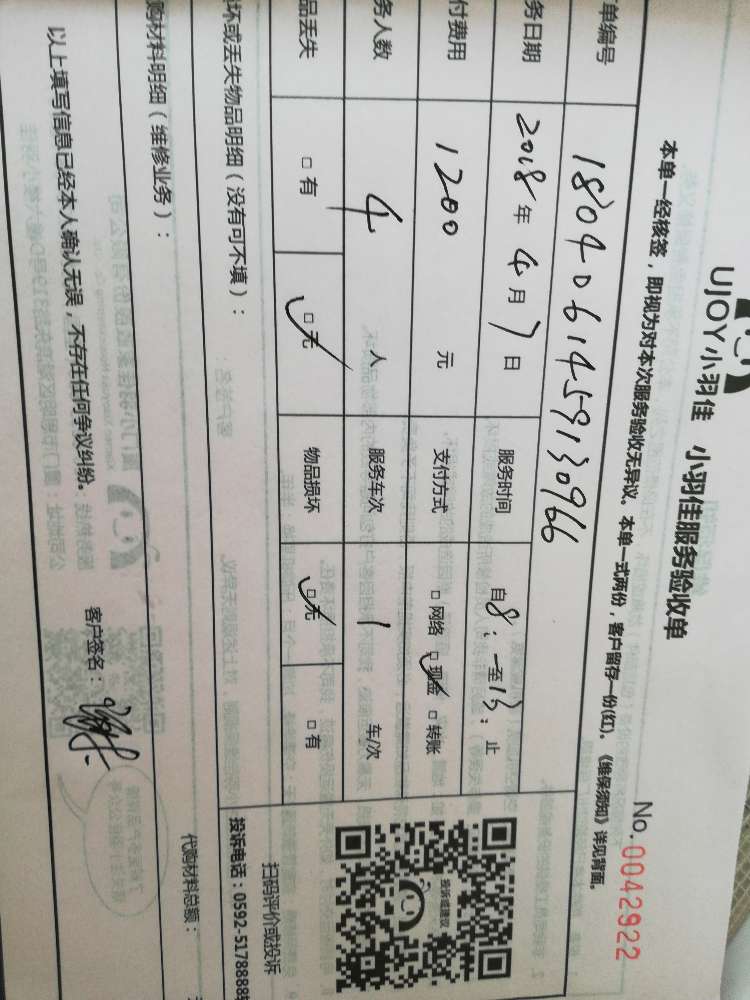 UJOY小羽佳 小羽佳服务验收单
No.0042922
本单一经核签，即视为对本次服务验收无异议。本单一式两份，客户留存一份(红)。《维保须知》详见背面。
单编号 1804061459130966
务日期 2018年4月7日 服务时间 自8:一至13:止
付费用 1200 元 支付方式 □网络 ☑现金 □转账
务人数 4 人 服务车次 1 车/次
品丢失 □有 ☑无 物品损坏 ☑无 □有
投诉或建议
扫码评价或投诉
坏或丢失物品明细（没有可不填）：
投诉电话：0592-5178888
购材料明细（维修业务）：
代购材料总额：
以上填写信息已经本人确认无误，不存在任何争议纠纷。
客户签名：